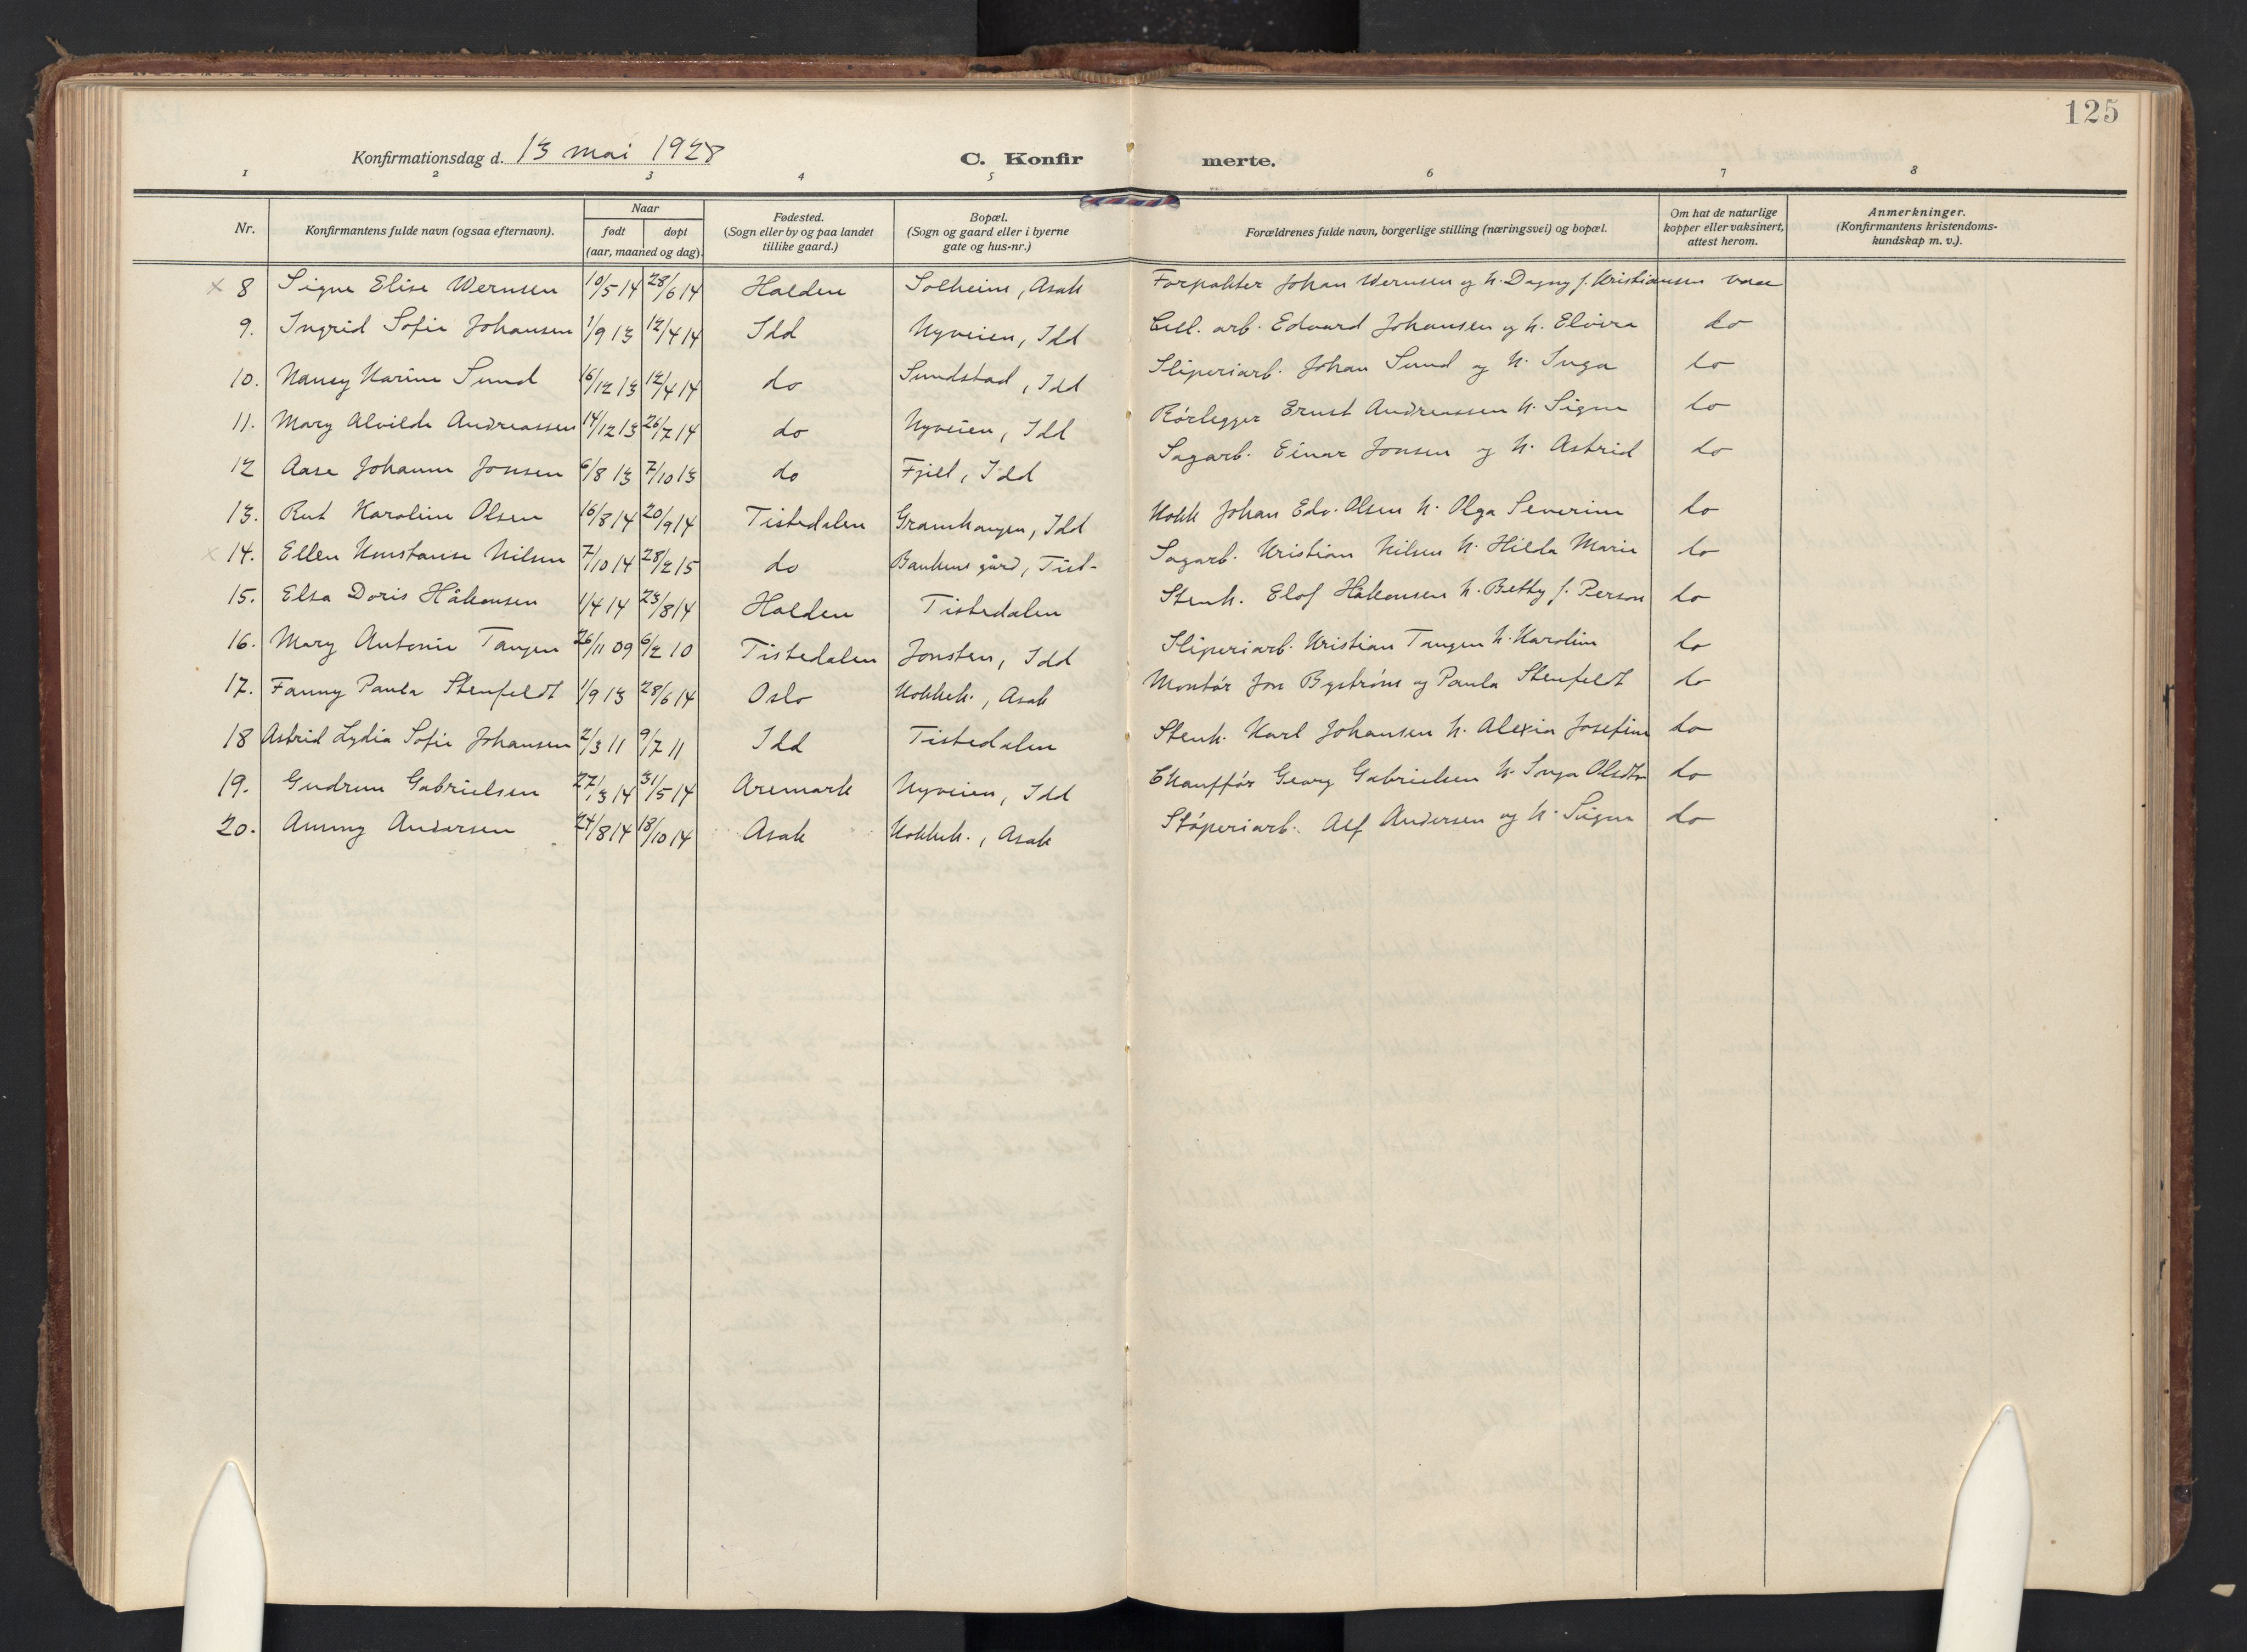 125
Konfirmationsdag d. 13 mai 1928 C. Konfirmerte.
1 2 3 4 5 6 7 8
Nr. Konfirmantens fulde navn (ogsaa efternavn). Naar født døpt (aar, maaned og dag). Fødested. (Sogn eller by og paa landet tillike gaard.) Bopæl. (Sogn og gaard eller i byerne gate og hus-nr.) Forældrenes fulde navn, borgerlige stilling (næringsvei) og bopæl. Om hat de naturlige kopper eller vaksinert, attest herom. Anmerkninger. (Konfirmantens kristendoms-kundskap m. v.).
x 8 Signe Elise Wernsen 10/5 14 28/6 14 Halden Solheim, Asak Forpakter Johan Wernsen og h. Dagny f. Kristiansen vacc
9. Ingrid Sofie Johansen 1/9 13 12/4 14 Idd Nyveien, Idd Cell. arb. Edvard Johansen og h. Elvira do
10. Nancy Karine Sund 16/12 13 12/4 14 do Sundstad, Idd Sliperiarb. Johan Sund og h. Inga do
11. Mary Alvilde Andreassen 14/12 13 26/7 14 do Nyveien, Idd Rørlegger Ernst Andreassen h. Signe do
12 Aase Johanne Jonsen 6/8 13 7/10 13 do Fjell, Idd Sagarb. Einar Jonsen og h. Astrid do
13. Rut Karoline Olsen 16/8 14 20/9 14 Tistedalen Granhaugen, Idd Kokk Johan Edv. Olsen h. Olga Severine do
x 14. Ellen Konstanse Nilsen 7/10 14 28/2 15 do Bankens gård, Tist- Sagarb. Kristian Nilsen h. Hilda Marie do
15. Elsa Doris Håkonsen 1/4 14 23/8 14 Halden Tistedalen Stenh. Elof Håkonsen h. Betty f. Person do
16. Mary Antonie Tangen 26/11 09 6/2 10 Tistedalen Jonsten, Idd Sliperiarb. Kristian Tangen h. Karoline do
17. Fanny Paula Stenfeldt 1/9 13 28/6 14 Oslo Kokkeh., Asak Montør Jon Byströms og Paula Stenfeldt do
18 Astrid Lydia Sofie Johansen 2/3 11 9/7 11 Idd Tistedalen Stenh. Karl Johansen h. Alexia Josefine do
19. Gudrun Gabrielsen 27/3 14 31/5 14 Aremark Nyveien, Idd Chauffør Georg Gabrielsen h. Inga Olsdtr do
20. Annny Andersen 24/8 14 18/10 14 Asak Kokkeh., Asak Støperiarb. Alf Andersen og h. Signe do